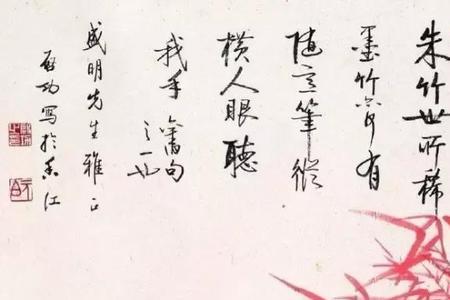 朱竹世所稀
墨竹亦何有
隨意筆縱
橫人眼聽
我手 舊句
之一也
盛明先生雅正
啟功寫於香江